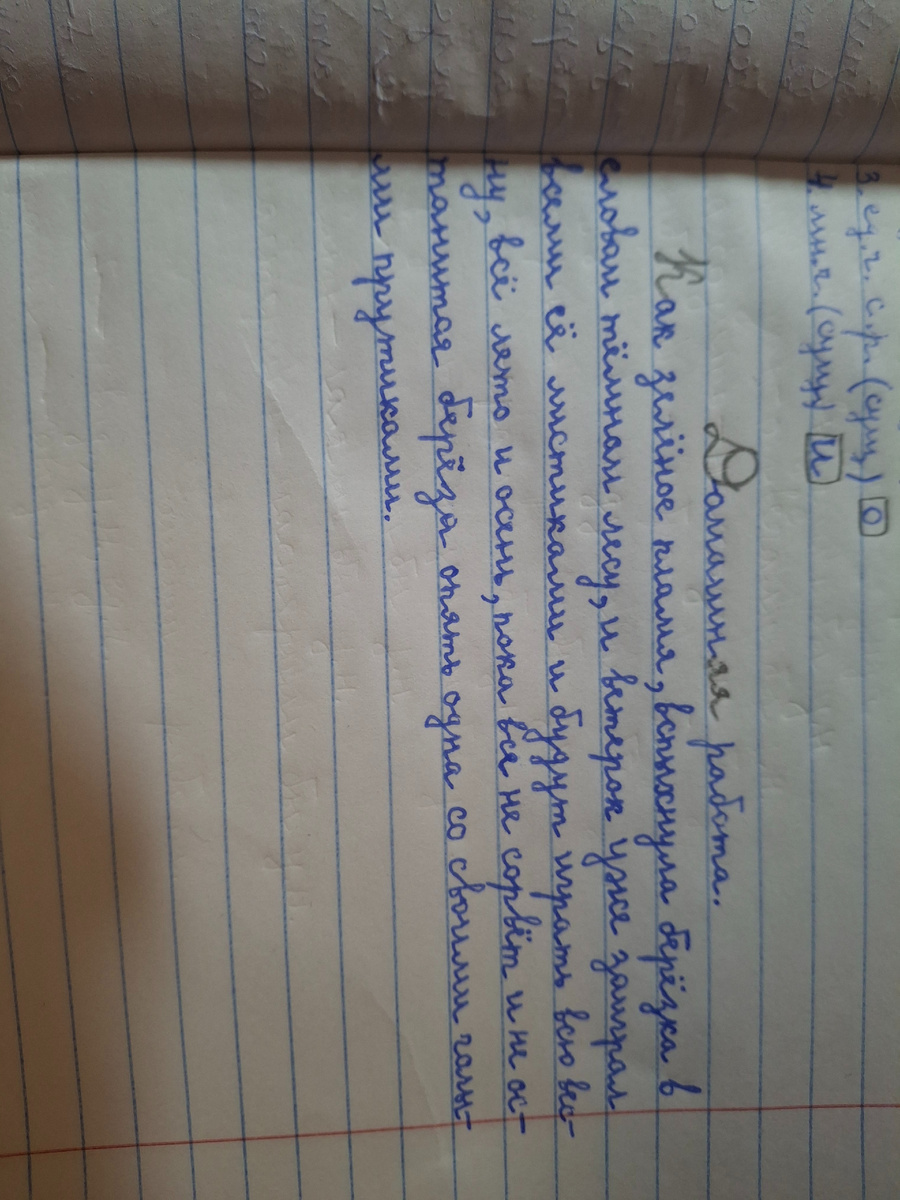 3. ед.ч. с.р. (сущ.) О
4. мн.ч. (сущ.) И
Домашняя работа.
Как зелёное пламя, вспыхнула берёзка в
еловам тёмнам лесу, и ветерок уже заиграл
всеми её листиками и будут играть всю вес-
ну, всё лето и осень, пока все не сорвёт и не ос-
танится берёза опять одна со своими голы-
ми прутиками.